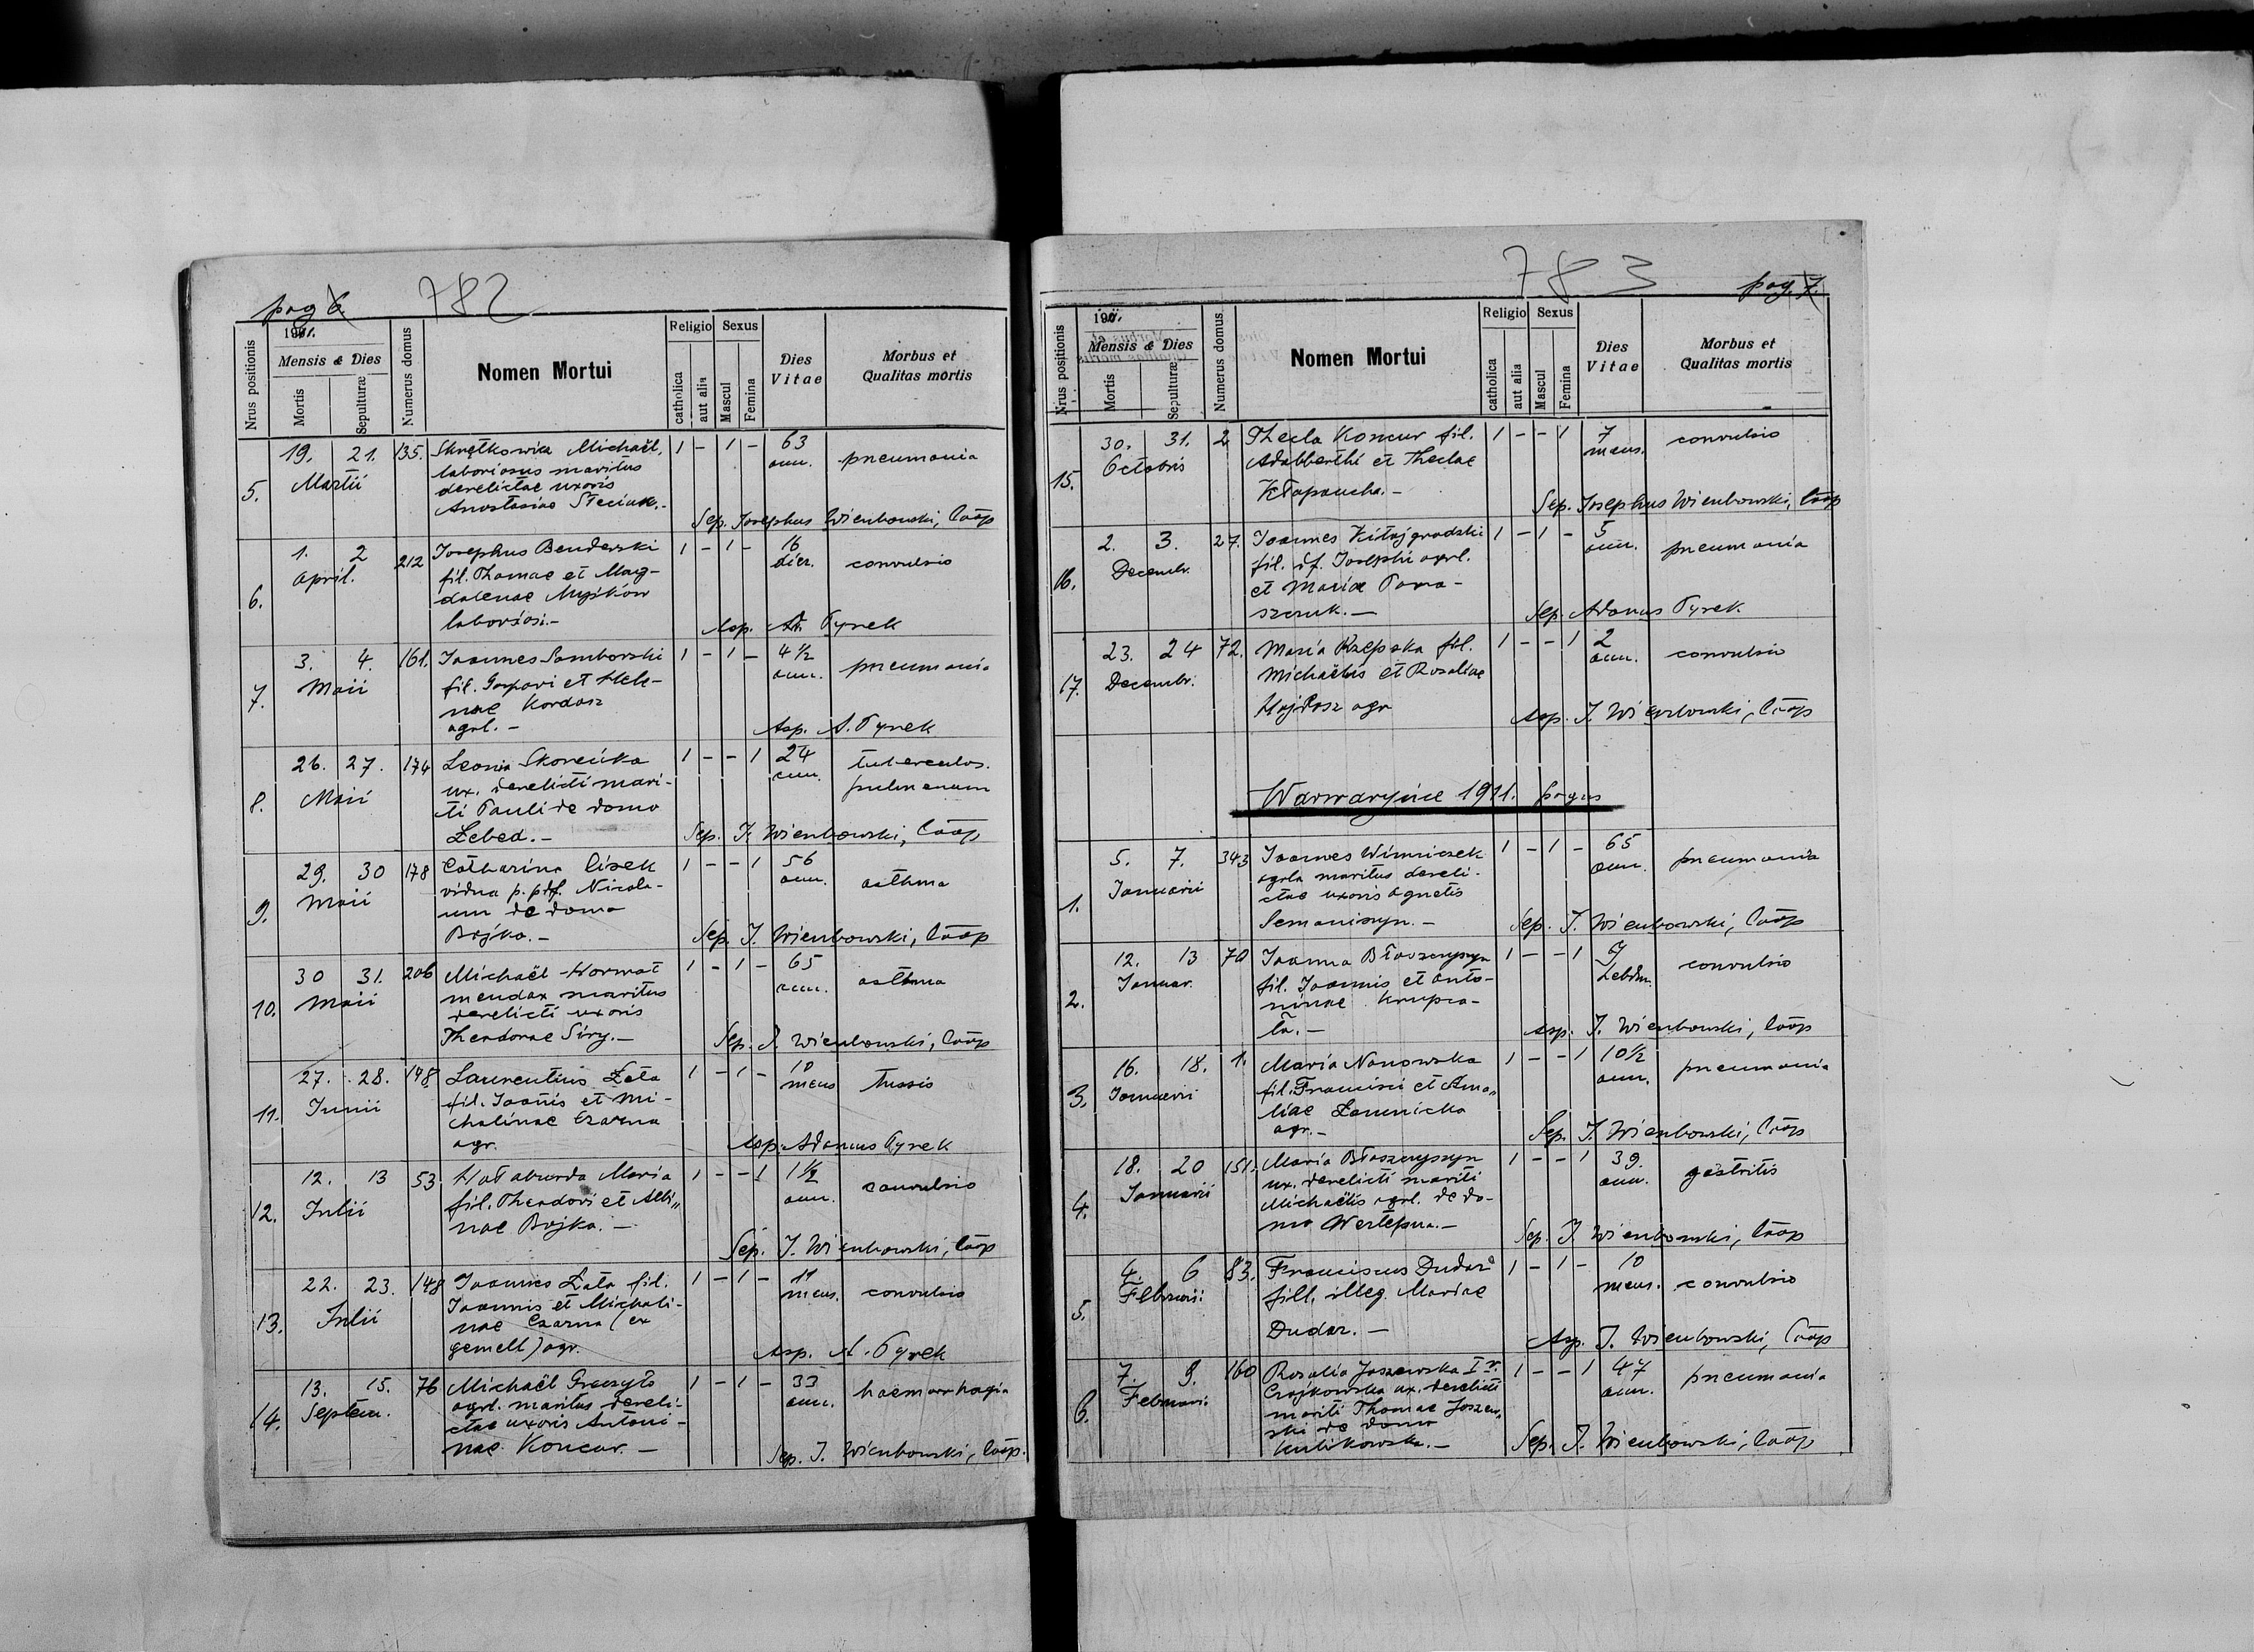 pag 6.
782
1911.
Nrus positionis
Mensis & Dies
Mortis
Sepulturæ
Numerus domus
Nomen Mortui
Religio
catholica
aut alia
Sexus
Mascul
Femina
Dies Vitae
Morbus et Qualitas mortis
5. 19. 21. Martii 135. 1 - 1 - 63 ann. pneumonia
Michaël,
laboriosus maritus
derelictae uxoris
Anastasiae Steciuk.-
Sep. Josephus Wienbowski, Coop
6. 1. 2 April. 212 1 - 1 - 16 dier. convulsio
Josephus Benderski
fil. Thomae et Mag-
dalenae Myśków
laboriosi.-
Asp. Ad. Tyrek
7. 3. 4. Maii 161. 1 - 1 - 4 1/2 ann. pneumonia
Joannes Samborski
fil. Gaspari et Hele-
nae Kordasz
agrl. -
Asp. A. Tyrek
8. 26. 27. Maii 174 1 - - 1 24 ann. tuberculos. pulmonum
Leonia Skoreńka
ux. derelicti mari-
ti Pauli de domo
Łebed. -
Sep. J. Wienbowski, Coop
9. 29. 30 Maii 178 1 - - 1 56 ann. asthma
Catharina Lisek
vidua p. pdf. Nicola-
um de domo
Bojko. -
Sep. J. Wienbowski, Coop
10. 30 31. Maii 206 1 - 1 - 65 ann. asthma
Michaël Hormat
mendax maritus
derelicti uxoris
Theodorae Siry. -
Sep. J. Wienbowski, Coop
11. 27. 28. Junii 148 1 - 1 - 10 mens tussis
Laurentius Łata
fil. Joannis et Mi-
chalinae Czarna
agr.
Asp. Adamus Tyrek
12. 12. 13 Julii 53 1 - - 1 1 1/2 ann. convulsio
Hałaburda Maria
fil. Theodori et Albi„
nae Bojko. -
Sep. J. Wienbowski, Coop
13. 22. 23. Julii 148 1 - 1 - 11 mens. convulsio
Joannes Łata fil.
Joannis et Michali-
nae Czarna (ex
gemell) agr.
Asp. A. Tyrek
14. 13. 15. Septem. 76 1 - 1 - 33 ann. haemorrhagia
Michaël
agrl. maritus dereli-
ctae uxoris Antoni-
nae Koncur. -
Sep. J. Wienbowski, Coop.
783
pag. 7.
1911.
Nrus positionis
Mensis & Dies
Mortis
Sepulturæ
Numerus domus
Nomen Mortui
Religio
catholica
aut alia
Sexus
Mascul
Femina
Dies Vitae
Morbus et Qualitas mortis
15. 30. 31. Octobris 2 1 - - 1 7 mens. convulsio
Thecla Koncur fil.
Adalberthi et Theclae
Kłapoucha. -
Sep. Josephus Wienbowski, Coop
16. 2. 3. Decembr. 27. 1 - 1 - 5 ann. pneumonia
Joannes Kitajgrodski
fil. df. Josephi agrl.
et Mariae Toma-
szczuk. -
Sep. Adamus Tyrek
17. 23. 24 Decembr. 72. 1 - - 1 2 ann. convulsio
Maria Rzepska fil.
Michaëlis et Rosaliae
Hajdasz agr
Asp. J. Wienbowski, Coop
Warwaryńce 1911. pagus
1. 5. 7. Januarii 343 1 - 1 - 65 ann. pneumonia
Joannes Winniczek
agrla maritus dereli-
ctae uxoris Agnetis
Semaniszyn. -
Sep. J. Wienbowski, Coop
2. 12. 13 Januar. 70 1 - - 1 convulsio
Joanna Błaszczyszyn
fil. Joannis et Anto-
ninae Krupca-
ła. -
Asp. J. Wienbowski, Coop
3. 16. 18. Januarii 1. 1 - - 1 10 1/2 ann. pneumonia
Maria Nanowska
fil. Francisci et Ama„
liae Zamnicka
agr. -
Sep. J. Wienbowski, Coop
4. 18. 20 Januarii 151. 1 - - 1 39. ann. gastritis
Maria Błaszczyszyn
ux. derelicti mariti
Michaëlis agrl. de do-
mo Wertepna. -
Sep. J. Wienbowski, Coop
5. 4. 6 Februarii 83. 1 - 1 - 10 mens. convulsio
Franciscus Dudar
fill. illeg. Mariae
Dudar. -
Asp. J. Wienbowski, Coop
6. 7. 9. Februari 160 1 - - 1 47 ann. pneumonia
Rosalia Joszewska I v.
Czajkowska ux. derelicti
mariti Thomae Joszew„
ski de domo
Kulikowska. -
Sep. J. Wienbowski, Coop